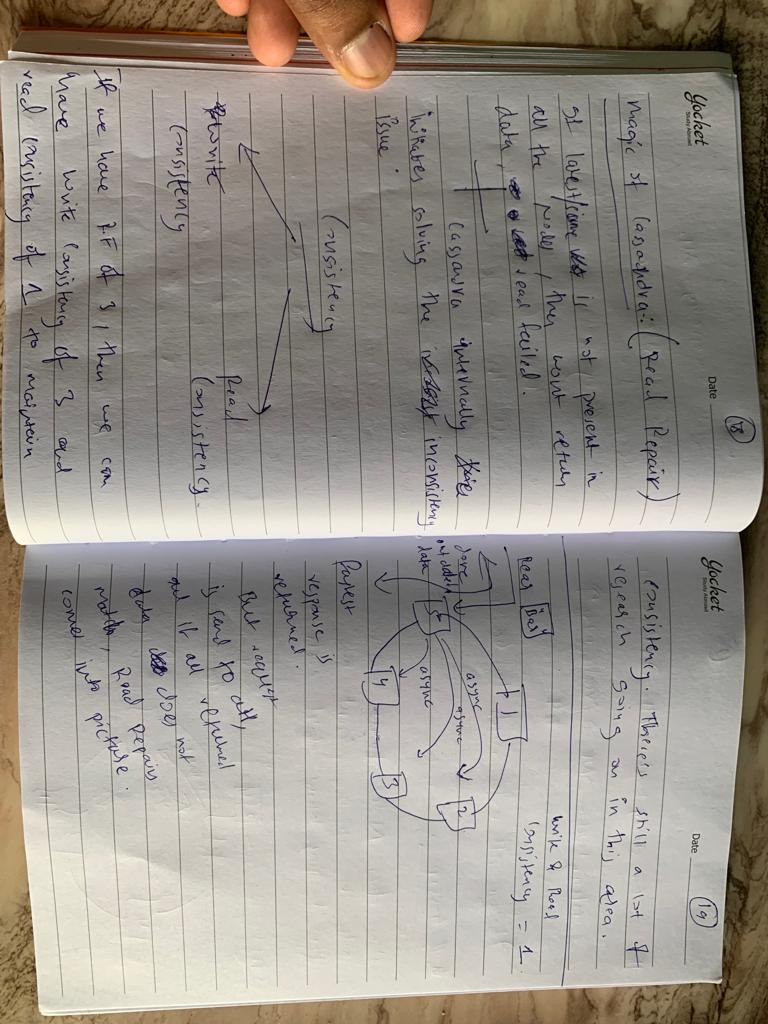 18
Yocket
Study Abroad
Date
Magic of Cassandra: (Read Repair)
If latest/same is not present in
all the Nodes, they wont return
data, read failed.
Cassandra internally
initiates solving the inconsistency
issue.
Consistency
Write
Consistency
Read
Consistency.
If we have RF of 3, then we can
have write consistency of 3 and
read consistency of 1 to maintain
19
Yocket
Study Abroad
Date
consistency. There's still a lot of
research going on in this area.
Write & Read
Consistency = 1
Read "Bas"
1
2
3
4
5
async
async
async
outdated
data
fastest
response is
returned.
But request
is send to all,
and if all returned
data does not
match, Read Repairs
comes into picture.